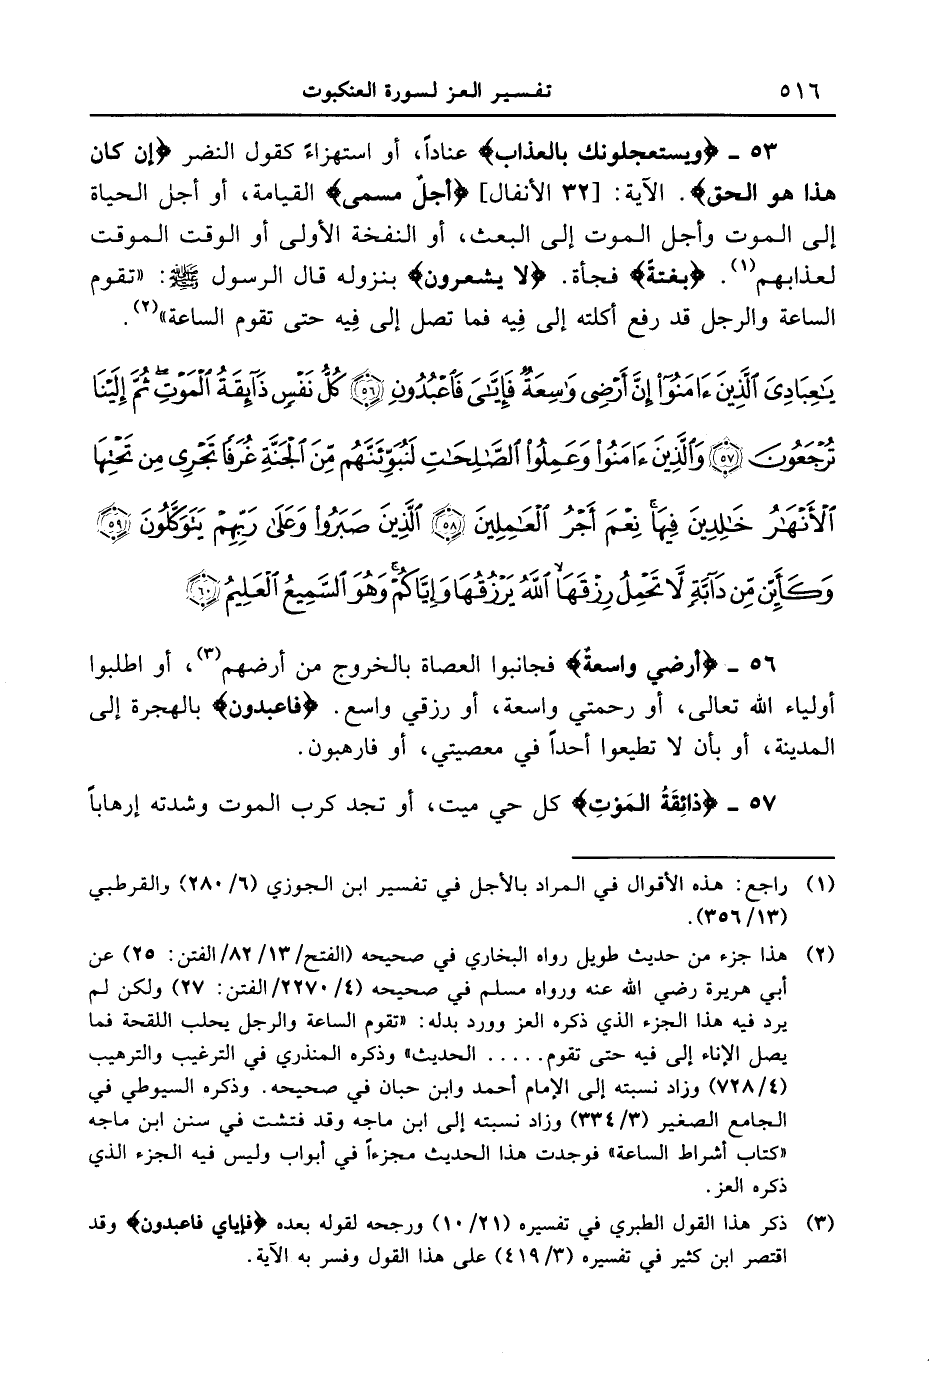 ٥١٦ تفسير العز لسورة العنكبوت
٥٣ ـ ﴿ويستعجلونك بالعذاب﴾ عناداً، أو استهزاءً كقول النضر ﴿إن كان
هذا هو الحق﴾. الآية: [٣٢ الأنفال] ﴿أجلٌ مسمى﴾ القيامة، أو أجل الحياة
إلى الموت وأجل الموت إلى البعث، أو النفخة الأولى أو الوقت الموقت
لعذابهم(١). ﴿بغتةً﴾ فجأة. ﴿لا يشعرون﴾ بنزوله قال الرسول ﷺ: «تقوم
الساعة والرجل قد رفع أكلته إلى فِيه فما تصل إلى فِيه حتى تقوم الساعة»(٢).
يَٰعِبَادِىَ ٱلَّذِينَ ءَامَنُوٓا۟ إِنَّ أَرْضِى وَٰسِعَةٌ فَإِيَّٰىَ فَٱعْبُدُونِ ﴿٥٦﴾ كُلُّ نَفْسٍ ذَآئِقَةُ ٱلْمَوْتِ ۖ ثُمَّ إِلَيْنَا
تُرْجَعُونَ ﴿٥٧﴾ وَٱلَّذِينَ ءَامَنُوا۟ وَعَمِلُوا۟ ٱلصَّٰلِحَٰتِ لَنُبَوِّئَنَّهُم مِّنَ ٱلْجَنَّةِ غُرَفًا تَجْرِى مِن تَحْتِهَا
ٱلْأَنْهَٰرُ خَٰلِدِينَ فِيهَا ۚ نِعْمَ أَجْرُ ٱلْعَٰمِلِينَ ﴿٥٨﴾ ٱلَّذِينَ صَبَرُوا۟ وَعَلَىٰ رَبِّهِمْ يَتَوَكَّلُونَ ﴿٥٩﴾
وَكَأَيِّن مِّن دَآبَّةٍ لَّا تَحْمِلُ رِزْقَهَا ٱللَّهُ يَرْزُقُهَا وَإِيَّاكُمْ ۚ وَهُوَ ٱلسَّمِيعُ ٱلْعَلِيمُ ﴿٦٠﴾
٥٦ ـ ﴿أرضي واسعةٌ﴾ فجانبوا العصاة بالخروج من أرضهم(٣)، أو اطلبوا
أولياء الله تعالى، أو رحمتي واسعة، أو رزقي واسع. ﴿فاعبدون﴾ بالهجرة إلى
المدينة، أو بأن لا تطيعوا أحداً في معصيتي، أو فارهبون.
٥٧ ـ ﴿ذائِقَةُ المَوْتِ﴾ كل حي ميت، أو تجد كرب الموت وشدته إرهاباً
(١) راجع: هذه الأقوال في المراد بالأجل في تفسير ابن الجوزي (٦/ ٢٨٠) والقرطبي
(١٣/ ٣٥٦).
(٢) هذا جزء من حديث طويل رواه البخاري في صحيحه (الفتح/ ١٣/ ٨٢/ الفتن: ٢٥) عن
أبي هريرة رضي الله عنه ورواه مسلم في صحيحه (٤/ ٢٢٧٠/ الفتن: ٢٧) ولكن لم
يرد فيه هذا الجزء الذي ذكره العز وورد بدله: «تقوم الساعة والرجل يحلب اللقحة فما
يصل الإناء إلى فيه حتى تقوم..... الحديث» وذكره المنذري في الترغيب والترهيب
(٤/ ٧٢٨) وزاد نسبته إلى الإمام أحمد وابن حبان في صحيحه. وذكره السيوطي في
الجامع الصغير (٣/ ٣٣٤) وزاد نسبته إلى ابن ماجه وقد فتشت في سنن ابن ماجه
«كتاب أشراط الساعة» فوجدت هذا الحديث مجزءاً في أبواب وليس فيه الجزء الذي
ذكره العز.
(٣) ذكر هذا القول الطبري في تفسيره (٢١/ ١٠) ورجحه لقوله بعده ﴿فإياي فاعبدون﴾ وقد
اقتصر ابن كثير في تفسيره (٣/ ٤١٩) على هذا القول وفسر به الآية.